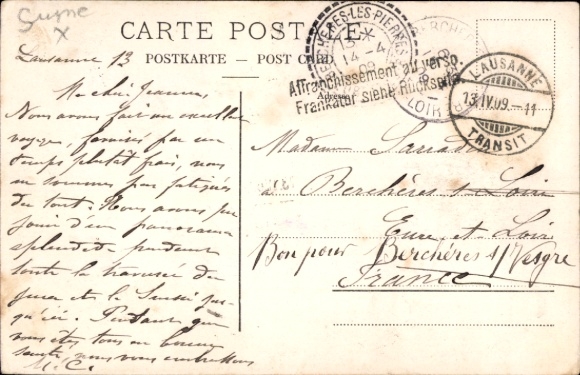 Suisse
X
CARTE POSTALE
POSTKARTE - POST CARD
Lausanne 13
Ma chère Jeanne,
Nous avons fait un excellent
voyage, favorisé par un
temps plutôt frais, nous
ne sommes pas fatigués
du tout. Nous avons pu
jouir d'un panorama
splendide pendant
toute la traversée du
Jura et la Suisse jus-
qu'ici. Pendant que
vous êtes tous en bonne
santé, nous vous embrassons
M. C.
BERCHÈRES-LES-PIERRES
13 * 
14 - 4
09
BERCHÈRES
LOIR
Affranchissement au verso.
Frankatur siehe Rückseite.
Adresse
LAUSANNE
13.IV.09.-11
TRANSIT
Madame Sarrada
à Berchères sur Loire
Eure et Loir
Bon pour Berchères s/ Vesgre
France